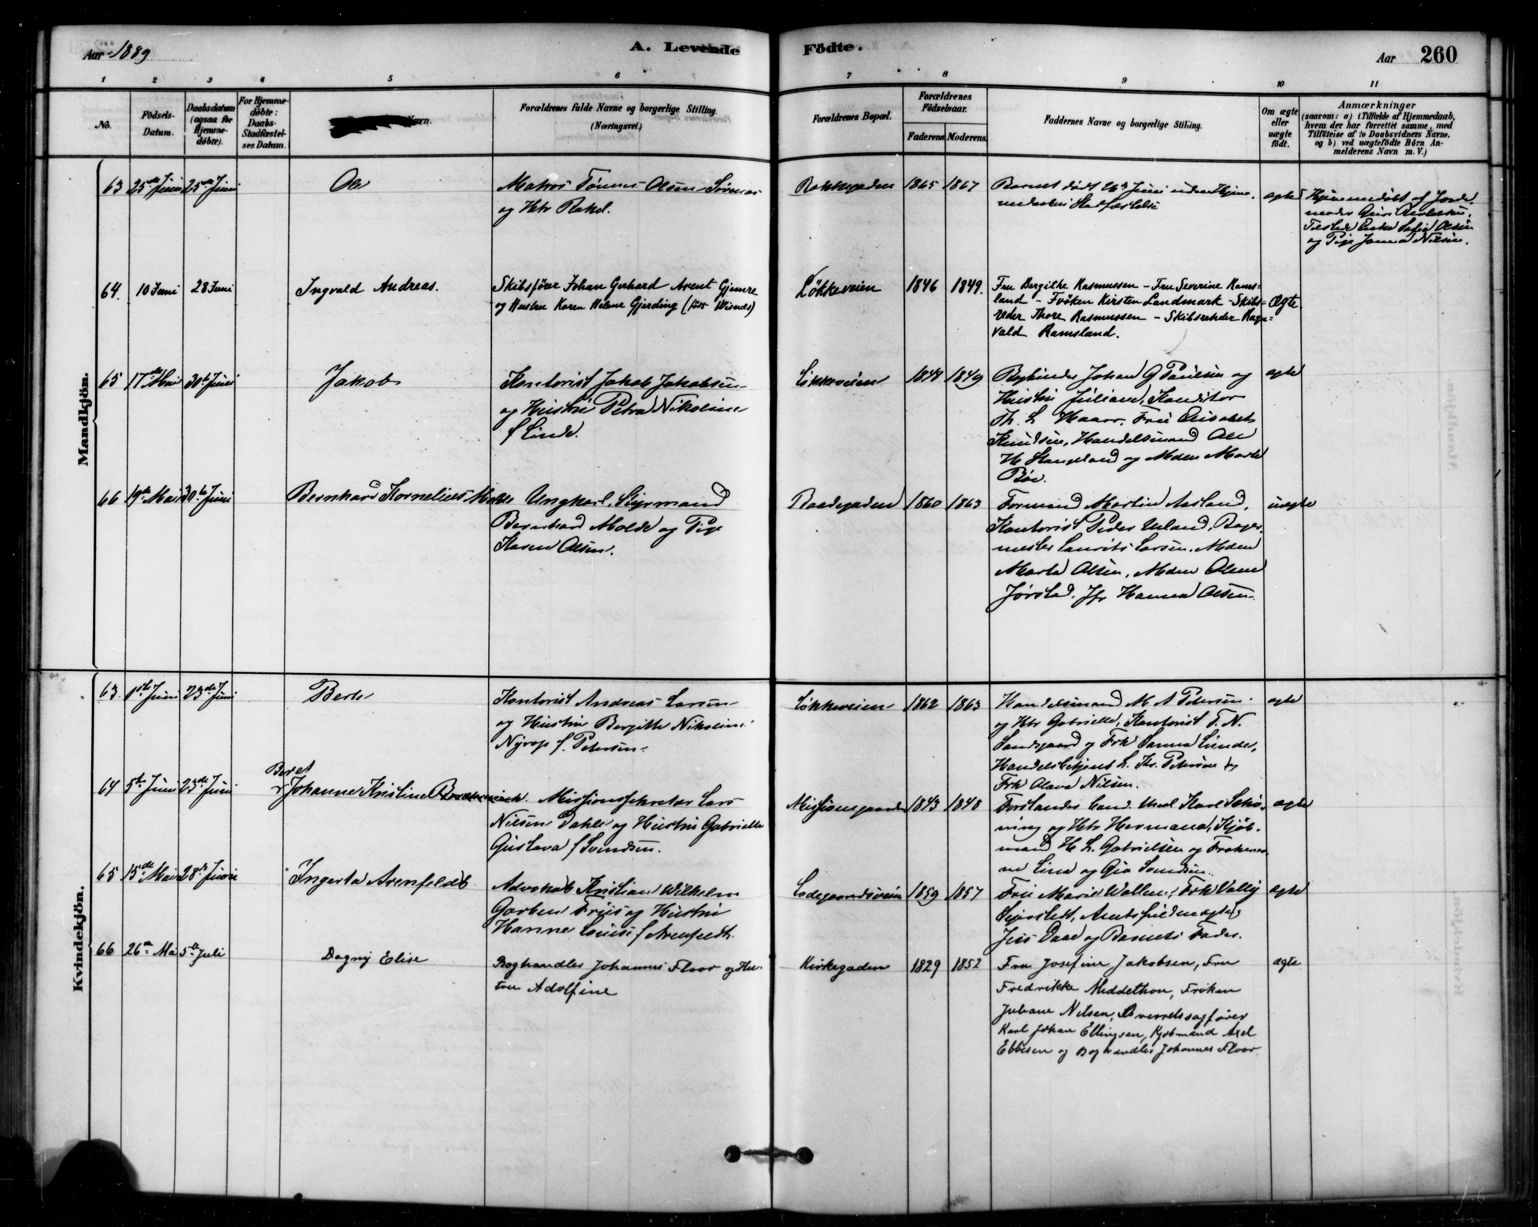 Aar 1889
A. Levende
Födte.
Aar 260
1 2 3 4 5 6 7 8 9 10 11
No.
Födsels-
Datum.
Daabsdatum
(ogsaa for
Hjemme-
döbte).
For Hjemme-
döbte:
Daabs-
Stadfæstel-
ses Datum.
Forældrenes fulde Navne og borgerlige Stilling.
(Næringsvei.)
Forældrenes Bopæl.
Forældrenes
Födselsaar.
Faderens. Moderens.
Faddernes Navne og borgerlige Stilling.
Om ægte
eller
uægte
födt.
Anmærkninger
(saasom: a) i Tilfælde af Hjemmedaab,
hvem der har forrettet samme, med
Tilföielse af to Daabsvidners Navne,
og b) ved uægtefödte Börn An-
melderens Navn m. V.)
Mandkjön.
63 25de Juni 25de Juni
Ole
Matros Tönnes Olsen
og Htr Rakel.
Bakkegaden 1865 1867
Barnet död 26de Juni uden Hjem-
medaabens Stadfæstelse
ægte
Hjemmedöbt af Jorde-
moder
Olsen
og Pige Nilsen.
64. 10 Juni 28 Juni
Ingvald Andreas.
Skibsförer Johan Gerhard Arent Gjemre
og Hustru Karen Helene Gjerding
Lökkeveien 1846 1849.
Fru Bergithe Rasmussen – Fru Severine Rams-
land – Fröken Kirsten Landmark – Skibs-
reder Thore Rasmussen – Skibsreder Rag-
vald Ramsland.
Ægte
65 17de Mai 30te Juni
Jakob
Kontorist Jakob Jakobsen
og Hustru Petra Nikoline
f Linde.
Lökkeveien 1849
Bogbinder Johan G Paulsen og
Hustru Juliane, Konditor
Th. L. Haarr, Fru Elisabet
Knudsen, Handelsmand Ole
H Stangeland og Mdm Marte
Böe.
ægte
66 19de Mai 30te Juni
Bernhard Kornelius Molde
Ungkarl, Styrmand
Bernhard Molde og Pige
Karen Olsen.
Raadegaden 1860 1863
Formand Martin Aarland,
Kontorist Peder Ueland, Bager-
mester Laurits Larsen, Mdm
Marta Olsen, Mdm Olene
Jörstad, Jfr Hanna Olsen.
uægte
Kvindekjön.
63 1ste Juni 23de Juni
Berte
Kontorist Andreas Larsen
og Hustru Bergitte Nikoline
Nyrop f. Petersen
Lökkeveien 1862 1863
Handelsmand M A Petersen
og Htr Gabrielle, Kontorist T. N.
Sandgaard og Frk Sanna Linde,
Handelsbetjent L. Petersen og
Frk Olava Nilsen.
ægte
64 5te Juni 23de Juni
Beret
Johanne Kristine
Missionssekretær Lars
Nilsen Dahle og Hustru Gabrielle
Gustava f Svendsen.
Missionsgaarden 1843 1848
Forstander Cand. theol Karl
og Htr Hermana, Kjöb-
mand H L. Gabrielsen og Frökener-
ne Lina og Gia Svendsen.
ægte
65 15de Mai 28de Juni
Ingerta Arenfeldt
Advokat Kristian Wilhelm
Garben Friis og Hustru
Hanne Louise f Arenfeldt.
Ladegaardsveien 1859 1857
Fru Marie Wallem, Frk Valby
Amtsfuldmægtig
Jess Daae og Barnets Fader.
ægte
66 26de Mai 5te Juli
Dagny Elise
Boghandler Johannes Floor og Hu-
stru Adolfine
Kirkegaden 1829 1852
Fru Josefine Jakobsen, Fru
Fredrikke Middelthon, Fröken
Juliane Nilsen, Overretssagförer
Karl Johan Ellingsen, Kjöbmand Axel
Ebbesen og Boghandler Johannes Floor.
ægte